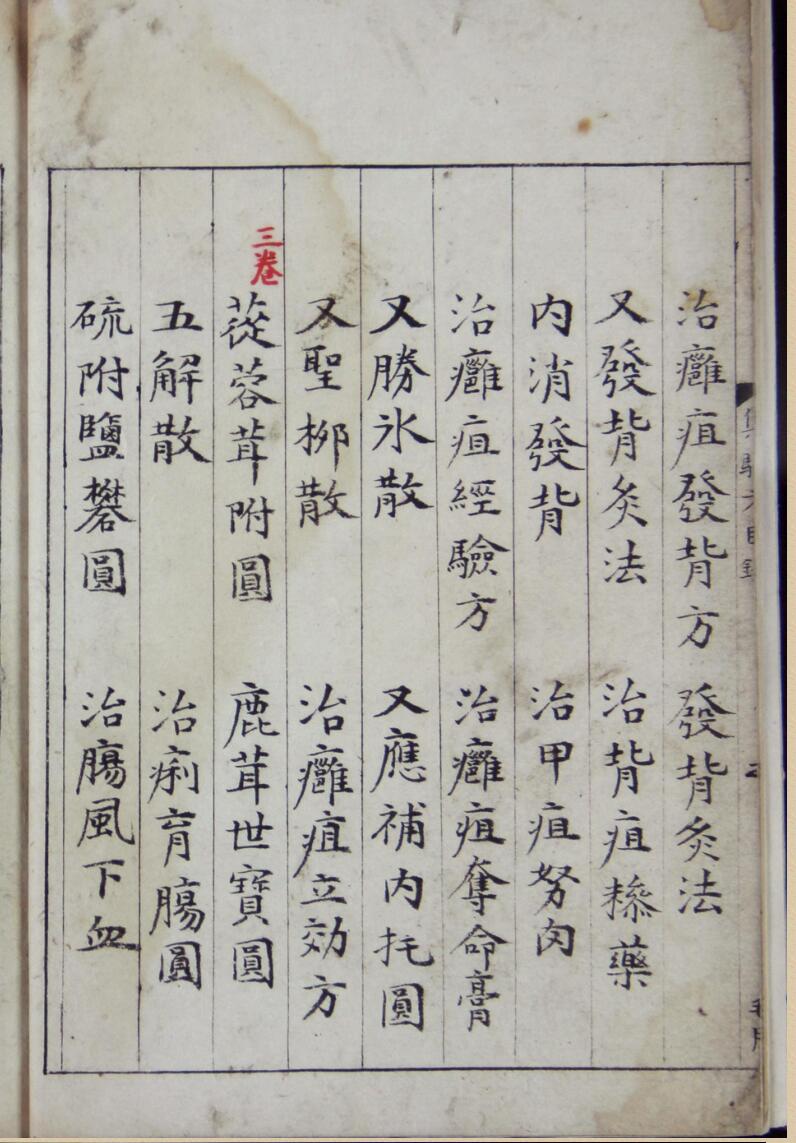 治癰疽發背方 發背灸法
又發背灸法 治背疽糝藥
内消發背 治甲疽努肉
治癰疽經驗方 治癰疽奪命膏
又勝氷散 又應補内托圓
又聖柳散 治癰疽立効方
三卷
蓯蓉茸附圓 鹿茸世寳圓
五解散 治痢育腸圓
硫附鹽礬圓 治腸風下血